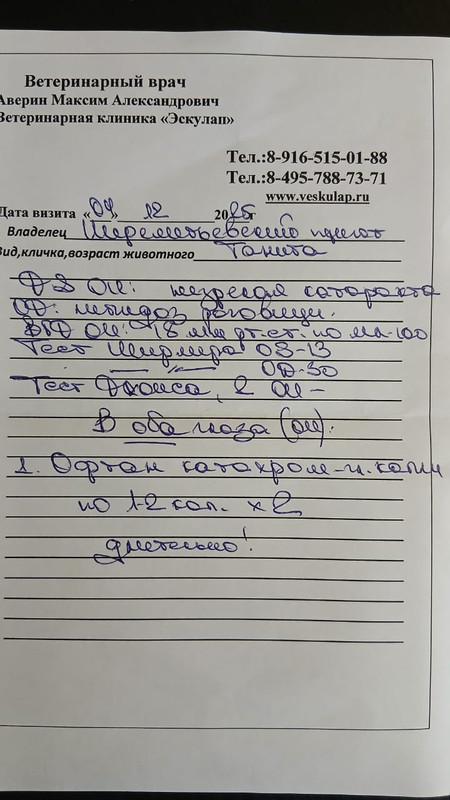 Ветеринарный врач
Аверин Максим Александрович
Ветеринарная клиника «Эскулап»
Тел.:8-916-515-01-88
Тел.:8-495-788-73-71
www.veskulap.ru
Дата визита «04» 12 2025г
Владелец Шереметьевский приют
Вид,кличка,возраст животного Танита
DS ОИ: незрелая катаракта
OD: роговицы.
ВГД ОИ: 18 мм рт.ст. по
Тест Ширмера OS-13
OD-30
Тест Джонса, 2 ОИ -
В оба глаза (ОИ):
1. Офтан катахром-гл. капли
по 1-2 кап. х 2
длительно!